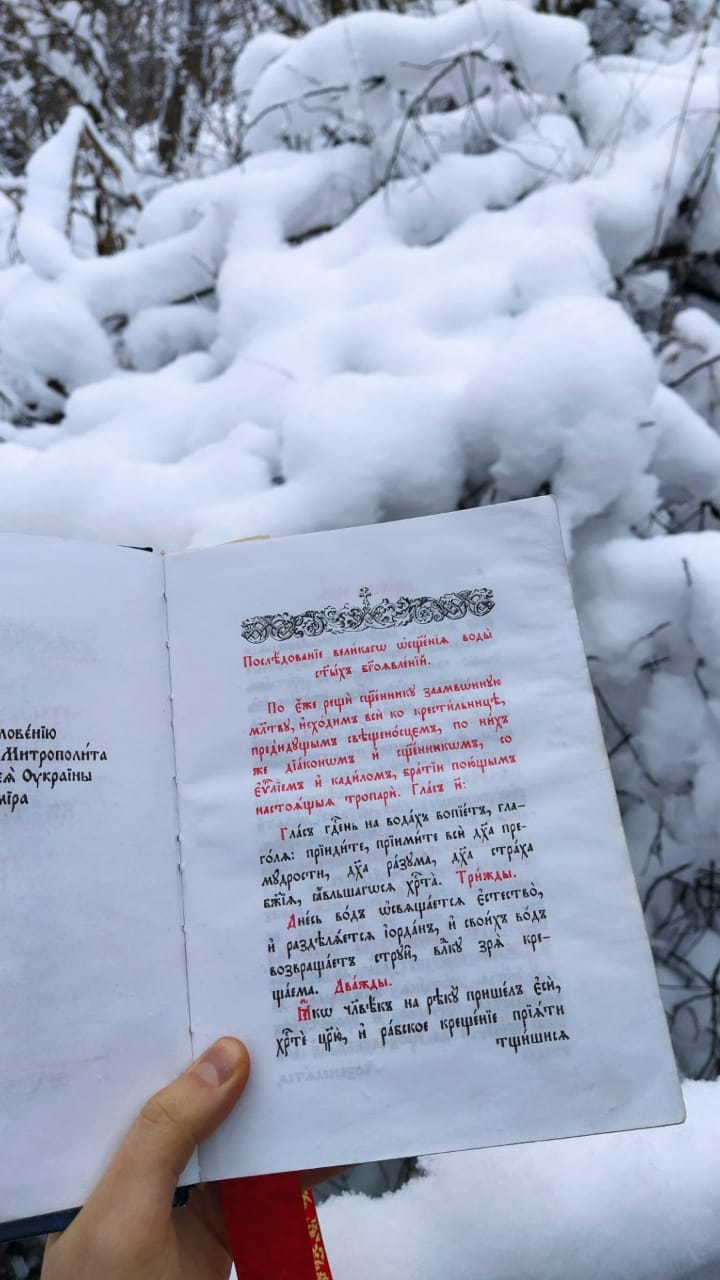 ловéнїю
Митрополи́та
еѧ̀ Оу҆краи́ны
мі́ра
Послѣ́дованїе вели́кагѡ ѡ҆сщ҃е́нїѧ воды̀
ст҃ы́хъ бг҃оѧвле́нїй.
По є҆́же рещѝ сщ҃е́ннику заамвѡ́нную
мл҃тву, и҆схо́димъ всѝ ко крести́льницѣ,
предиду́щымъ свѣщено́сцемъ, по ни́хъ
же дїа́конѡмъ и҆ сщ҃е́нникѡмъ, со
є҆ѵⷢ҇лїемъ и҆ кади́ломъ, бра́тїи пою́щымъ
настоѧ́щыѧ тропарѝ. Гла́съ и҃:
Гла́съ гдⷭ҇ень на вода́хъ вопїе́тъ, гла-
го́лѧ: прїиди́те, прїими́те всѝ дх҃а пре-
му́дрости, дх҃а ра́зума, дх҃а стра́ха
бж҃їѧ, ꙗ҆́вльшагѡсѧ хрⷭ҇та̀. Три́жды.
Дне́сь во́дъ ѡ҆свѧща́етсѧ є҆стество̀,
и҆ раздѣлѧ́етсѧ і҆ѻрда́нъ, и҆ свои́хъ во́дъ
возвраща́етъ стрꙋи̑, влⷣкꙋ зрѧ̀ кре-
ща́ема. Два́жды.
Ꙗ҆́кѡ чл҃вѣ́къ на рѣ́кꙋ прише́лъ є҆сѝ,
хрⷭ҇тѐ цр҃ю̀, и҆ ра́бское креще́нїе прїѧ́ти
тщи́шисѧ